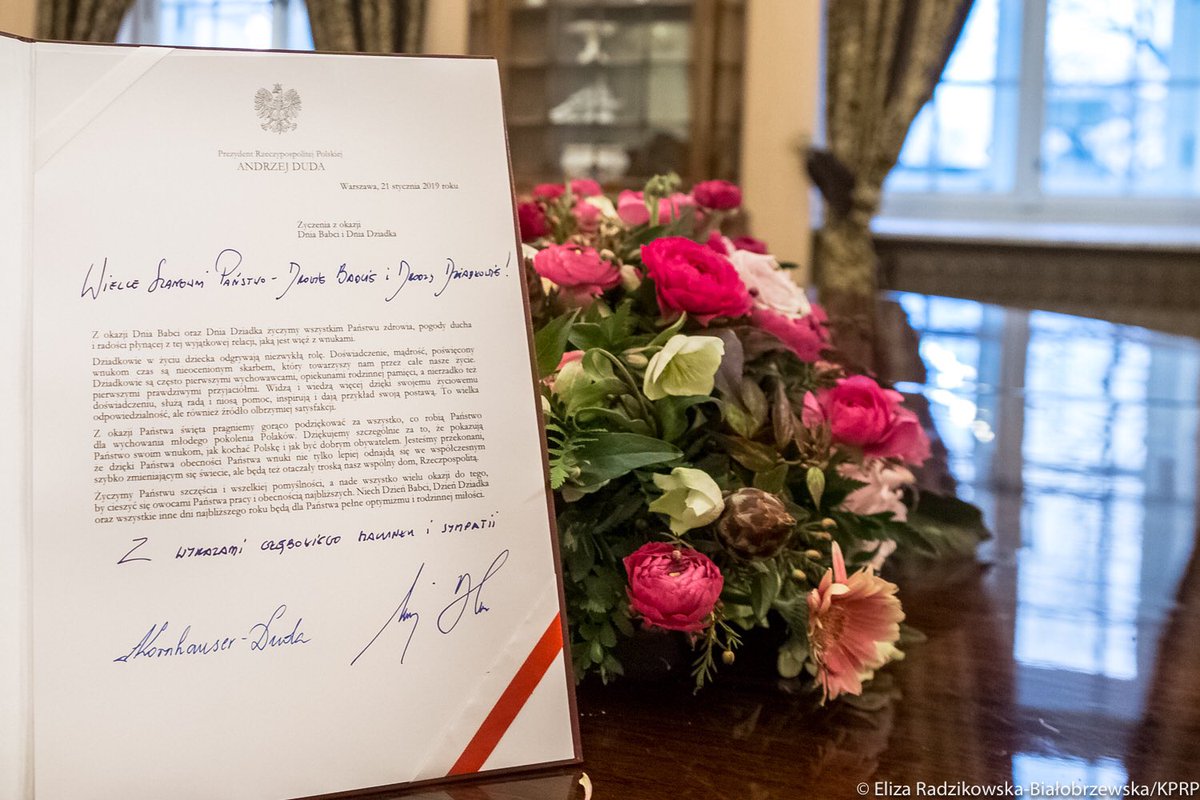 Prezydent Rzeczypospolitej Polskiej
ANDRZEJ DUDA
Warszawa, 21 stycznia 2019 roku
Życzenia z okazji
Dnia Babci i Dnia Dziadka
Wielce Szanowni Państwo – Drogie Babcie i Drodzy Dziadkowie!
Z okazji Dnia Babci oraz Dnia Dziadka życzymy wszystkim Państwu zdrowia, pogody ducha
i radości płynącej z tej wyjątkowej relacji, jaką jest więź z wnukami.
Dziadkowie w życiu dziecka odgrywają niezwykłą rolę. Doświadczenie, mądrość, poświęcony
wnukom czas są nieocenionym skarbem, który towarzyszy nam przez całe nasze życie.
Dziadkowie są często pierwszymi wychowawcami, opiekunami rodzinnej pamięci, a nierzadko też
pierwszymi prawdziwymi przyjaciółmi. Widzą i wiedzą więcej dzięki swojemu życiowemu
doświadczeniu, służą radą i niosą pomoc, inspirują i dają przykład swoją postawą. To wielka
odpowiedzialność, ale również źródło olbrzymiej satysfakcji.
Z okazji Państwa święta pragniemy gorąco podziękować za wszystko, co robią Państwo
dla wychowania młodego pokolenia Polaków. Dziękujemy szczególnie za to, że pokazują
Państwo swoim wnukom, jak kochać Polskę i jak być dobrym obywatelem. Jesteśmy przekonani,
że dzięki Państwa obecności Państwa wnuki nie tylko lepiej odnajdą się we współczesnym
szybko zmieniającym się świecie, ale będą też otaczały troską nasz wspólny dom, Rzeczpospolitą.
Życzymy Państwu szczęścia i wszelkiej pomyślności, a nade wszystko wielu okazji do tego,
by cieszyć się owocami Państwa pracy i obecnością najbliższych. Niech Dzień Babci, Dzień Dziadka
oraz wszystkie inne dni najbliższego roku będą dla Państwa pełne optymizmu i rodzinnej miłości.
Z wyrazami głębokiego szacunku i sympatii
AKornhauser-Duda
© Eliza Radzikowska-Białobrzewska/KPRP